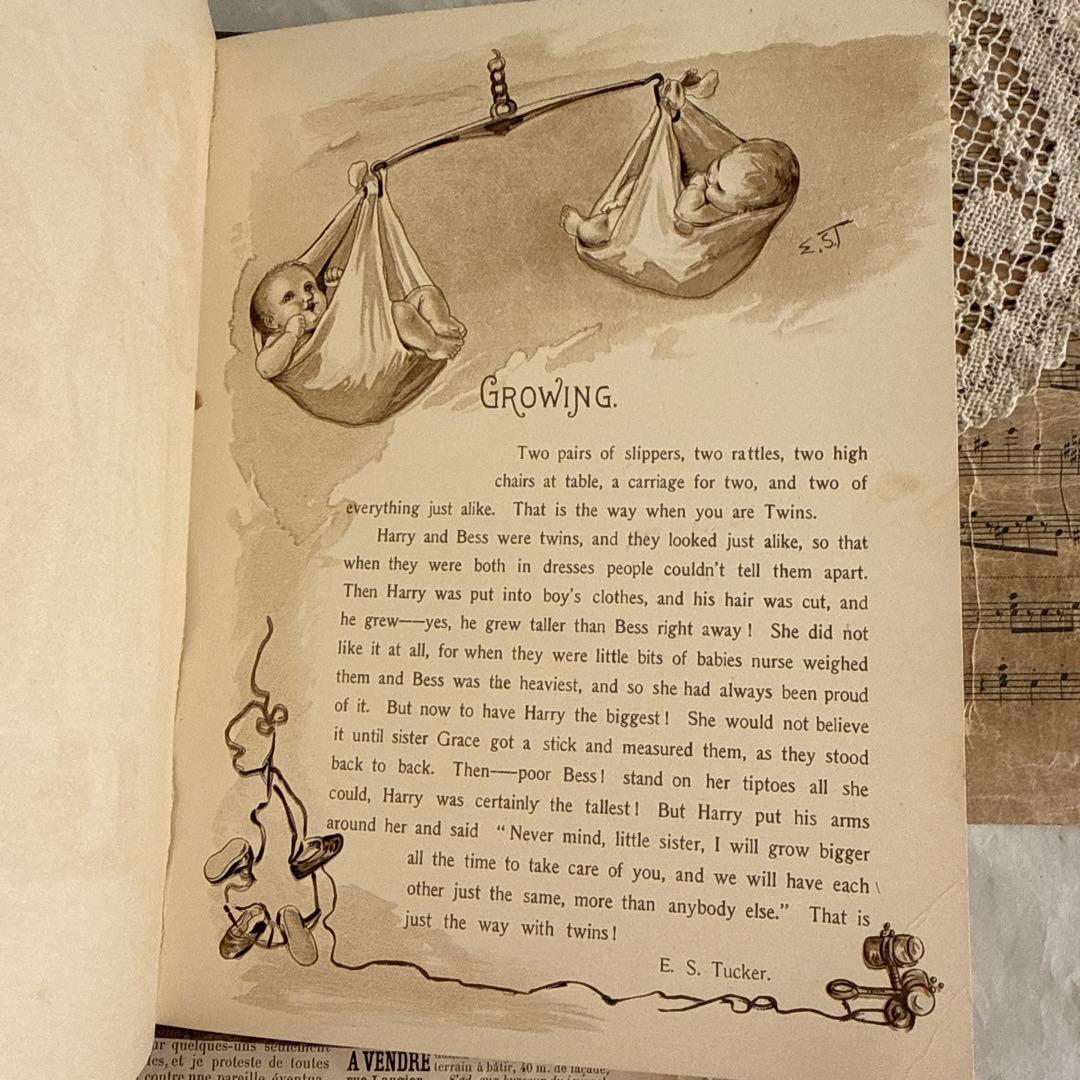 E.S.T
GROWING.
Two pairs of slippers, two rattles, two high
chairs at table, a carriage for two, and two of
everything just alike. That is the way when you are Twins.
Harry and Bess were twins, and they looked just alike, so that
when they were both in dresses people couldn't tell them apart.
Then Harry was put into boy's clothes, and his hair was cut, and
he grew—yes, he grew taller than Bess right away! She did not
like it at all, for when they were little bits of babies nurse weighed
them and Bess was the heaviest, and so she had always been proud
of it. But now to have Harry the biggest! She would not believe
it until sister Grace got a stick and measured them, as they stood
back to back. Then—poor Bess! stand on her tiptoes all she
could, Harry was certainly the tallest! But Harry put his arms
around her and said "Never mind, little sister, I will grow bigger
all the time to take care of you, and we will have each
other just the same, more than anybody else." That is
just the way with twins!
E. S. Tucker.
quelques-uns seulement
et je proteste de toutes
contre une pareille
A VENDRE
terrain à bâtir, 40 m. de façade,